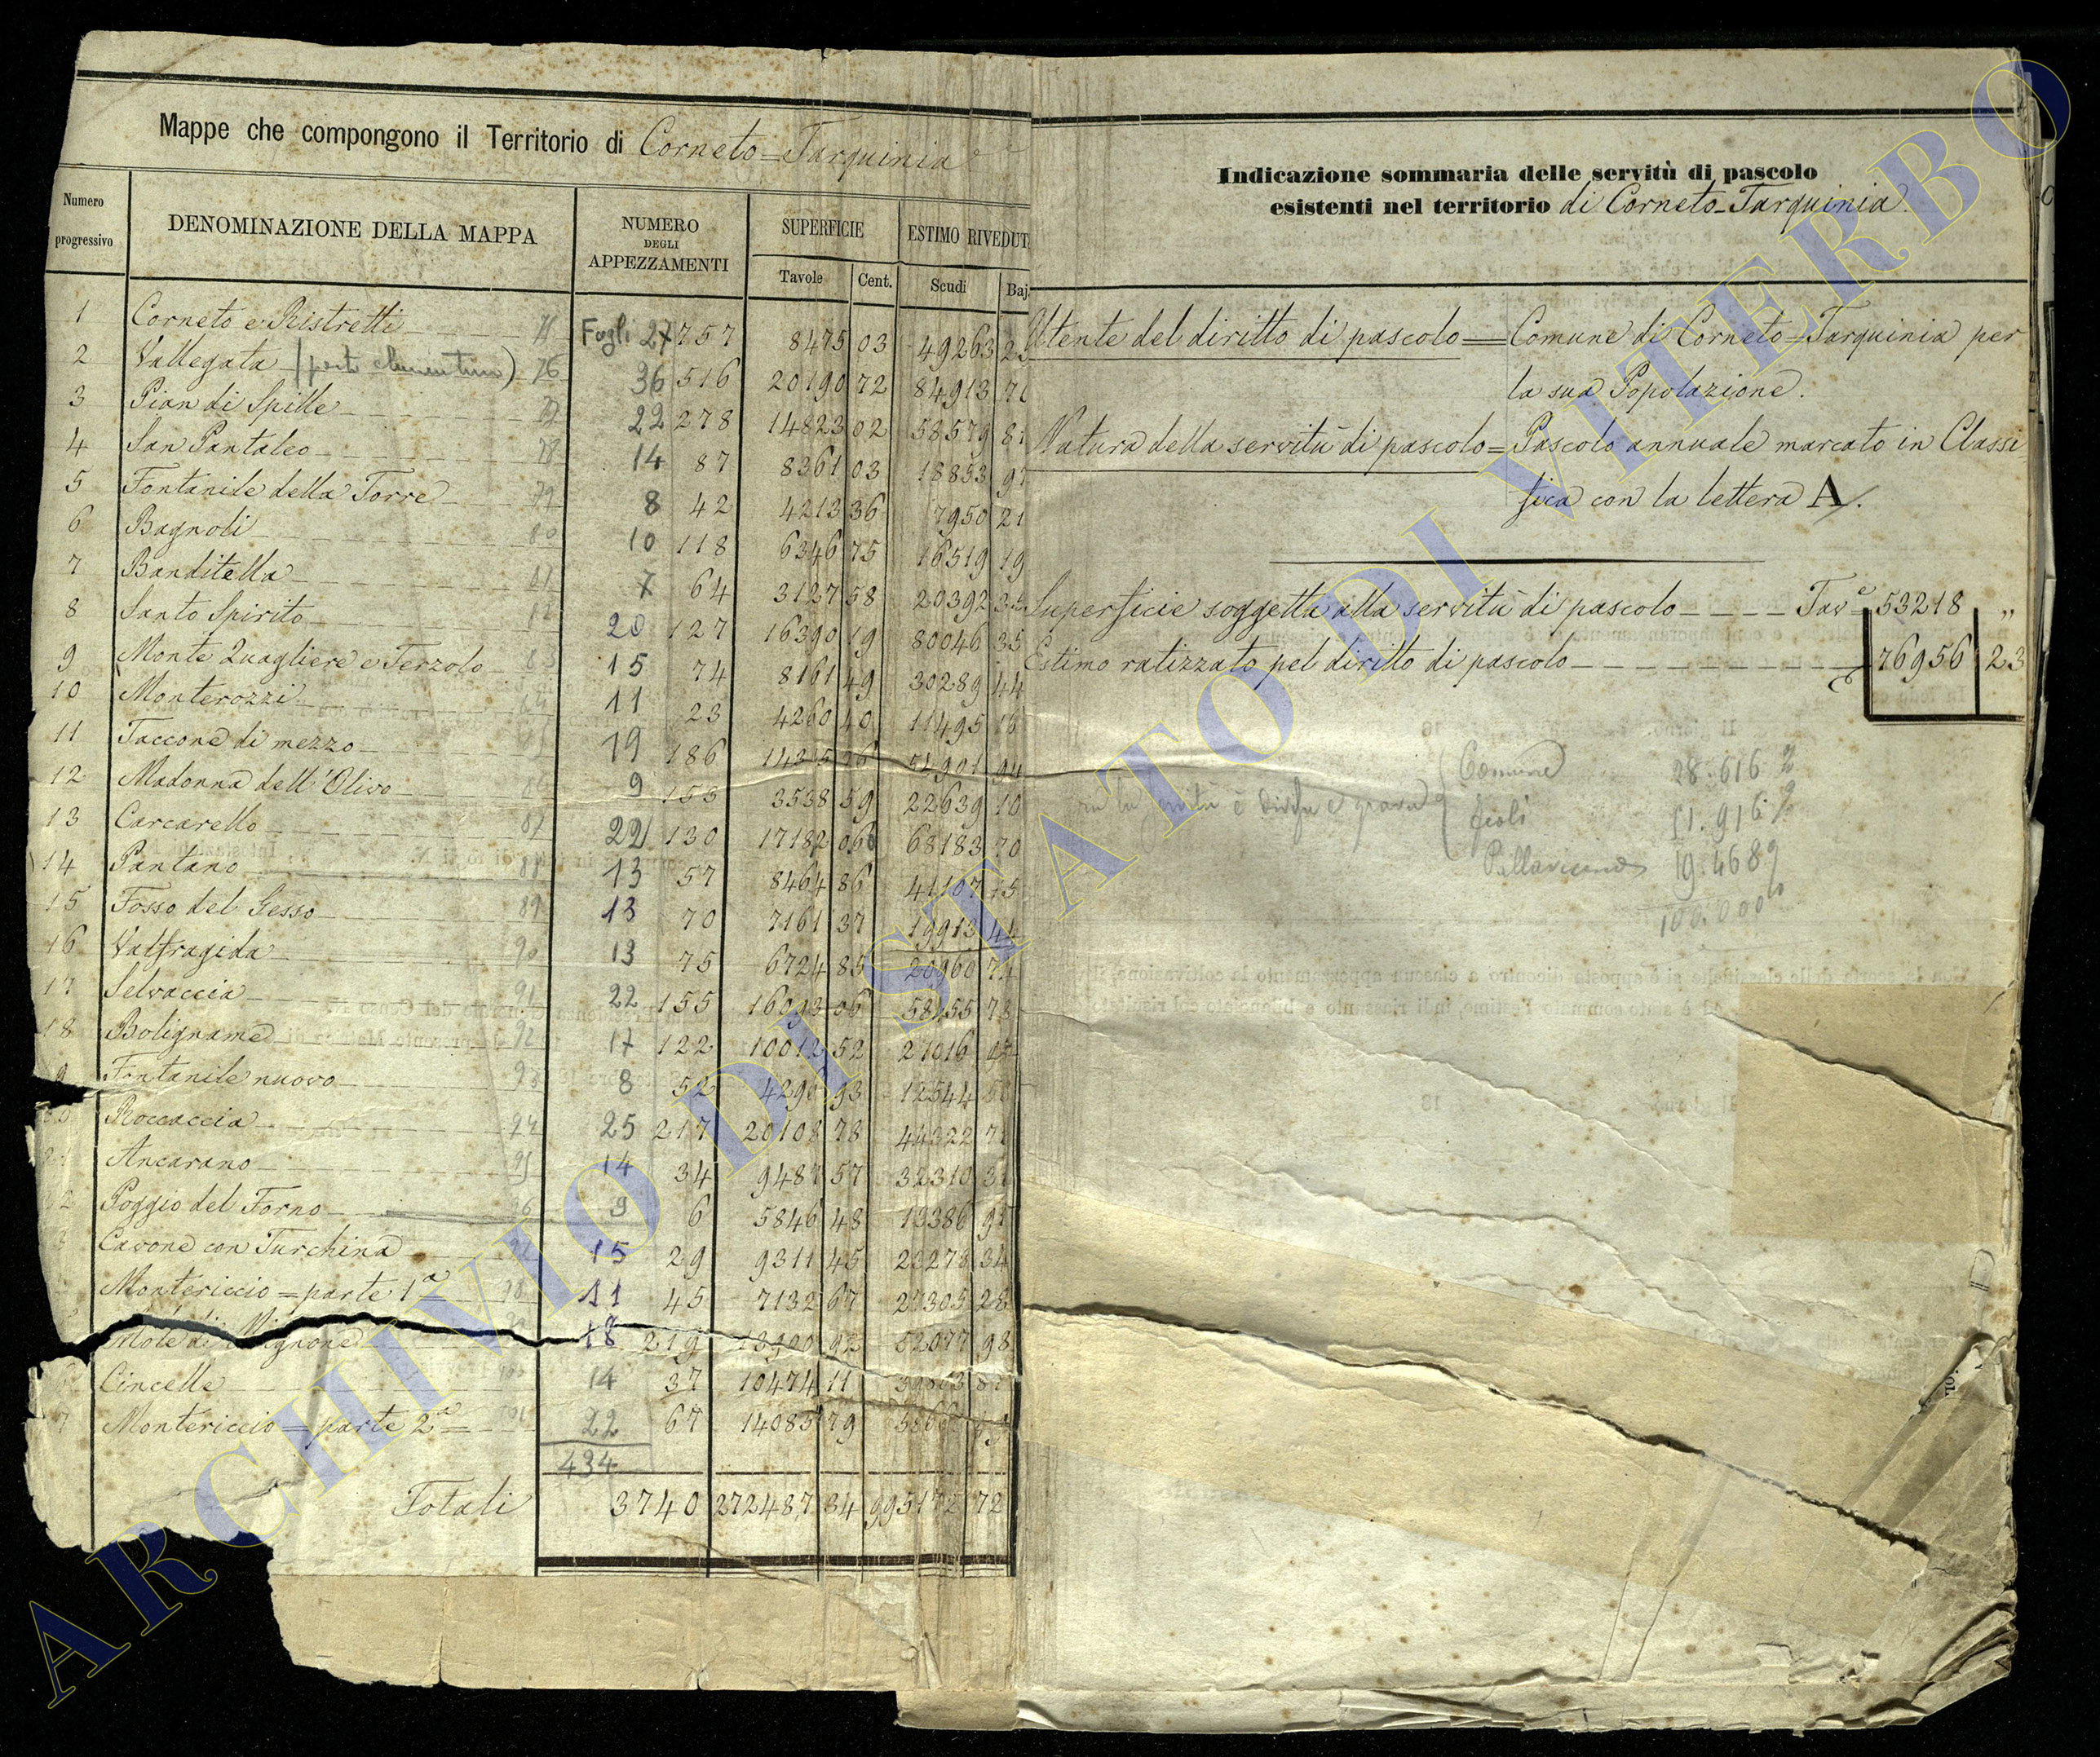 Mappe che compongono il Territorio di Corneto=Tarquinia
Numero progressivo
DENOMINAZIONE DELLA MAPPA
NUMERO DEGLI APPEZZAMENTI
SUPERFICIE
ESTIMO RIVEDUT
Tavole Cent. Scudi Baj.
1 Corneto e Ristretti 75 Fogli 27 757 8475 03 49263
2 Vallegata 76 36 516 20190 72 84913
3 Pian di Spille 77 22 278 14823 02 58579 81
4 San Pantaleo 78 14 87 8361 03 18853
5 Fontanile della Torre 79 8 42 4213 36 7950 21
6 Bagnoli 80 10 118 6346 75 16519 19
7 Banditella 81 7 64 3127 58 20392
8 Santo Spirito 82 20 127 16390 19 80046 35
9 Monte Quagliere e Terzolo 83 15 74 8161 49 30289 44
10 Monterozzi 84 11 23 4260 40 11495
11 Taccone di mezzo 19 186
12 Madonna dell'Olivo 9 153 3538 59 22639 10
13 Carcarello 87 22 130 17182 06 68183 70
14 Pantano 88 13 57 8464 86 41107
15 Fosso del Gesso 89 13 70 7161 37 19913 44
16 Valfragida 90 13 75 6724 85 20960
17 Selvaccia 91 22 155 16093 06
18 Boligname 92 17 122 10012 52 21016
Fontanile nuovo 93 8 52 4290 93 12544
Roccaccia 94 25 217 20108 78 44322
Ancarano 95 14 34 9487 57 32310
2 Poggio del Forno 96 9 6 5846 48 13386
3 Cavone con Turchina 97 15 29 9311 45 23278 34
Montericcio=parte 1ª 98 11 45 7132 67 28
Mole di Mignone 18 219 92 52077 98
Cincelle 100 14 37 10474 11
7 Montericcio=parte 2ª 101 22 67 14085 79
434
Totali 3740 272487 34 995172 72
Indicazione sommaria delle servitù di pascolo
esistenti nel territorio di Corneto=Tarquinia.
Utente del diritto di pascolo = Comune di Corneto=Tarquinia per
la sua Popolazione.
Natura della servitù di pascolo = Pascolo annuale marcato in Classi
fica con la lettera A.
Superficie soggetta alla servitù di pascolo Tavᵉ 53218 "
Estimo ratizzato pel diritto di pascolo 76956 23
Comune 28.616 %
51.916 %
19.468 %
100.000 %
ARCHIVIO DI STATO DI VITERBO